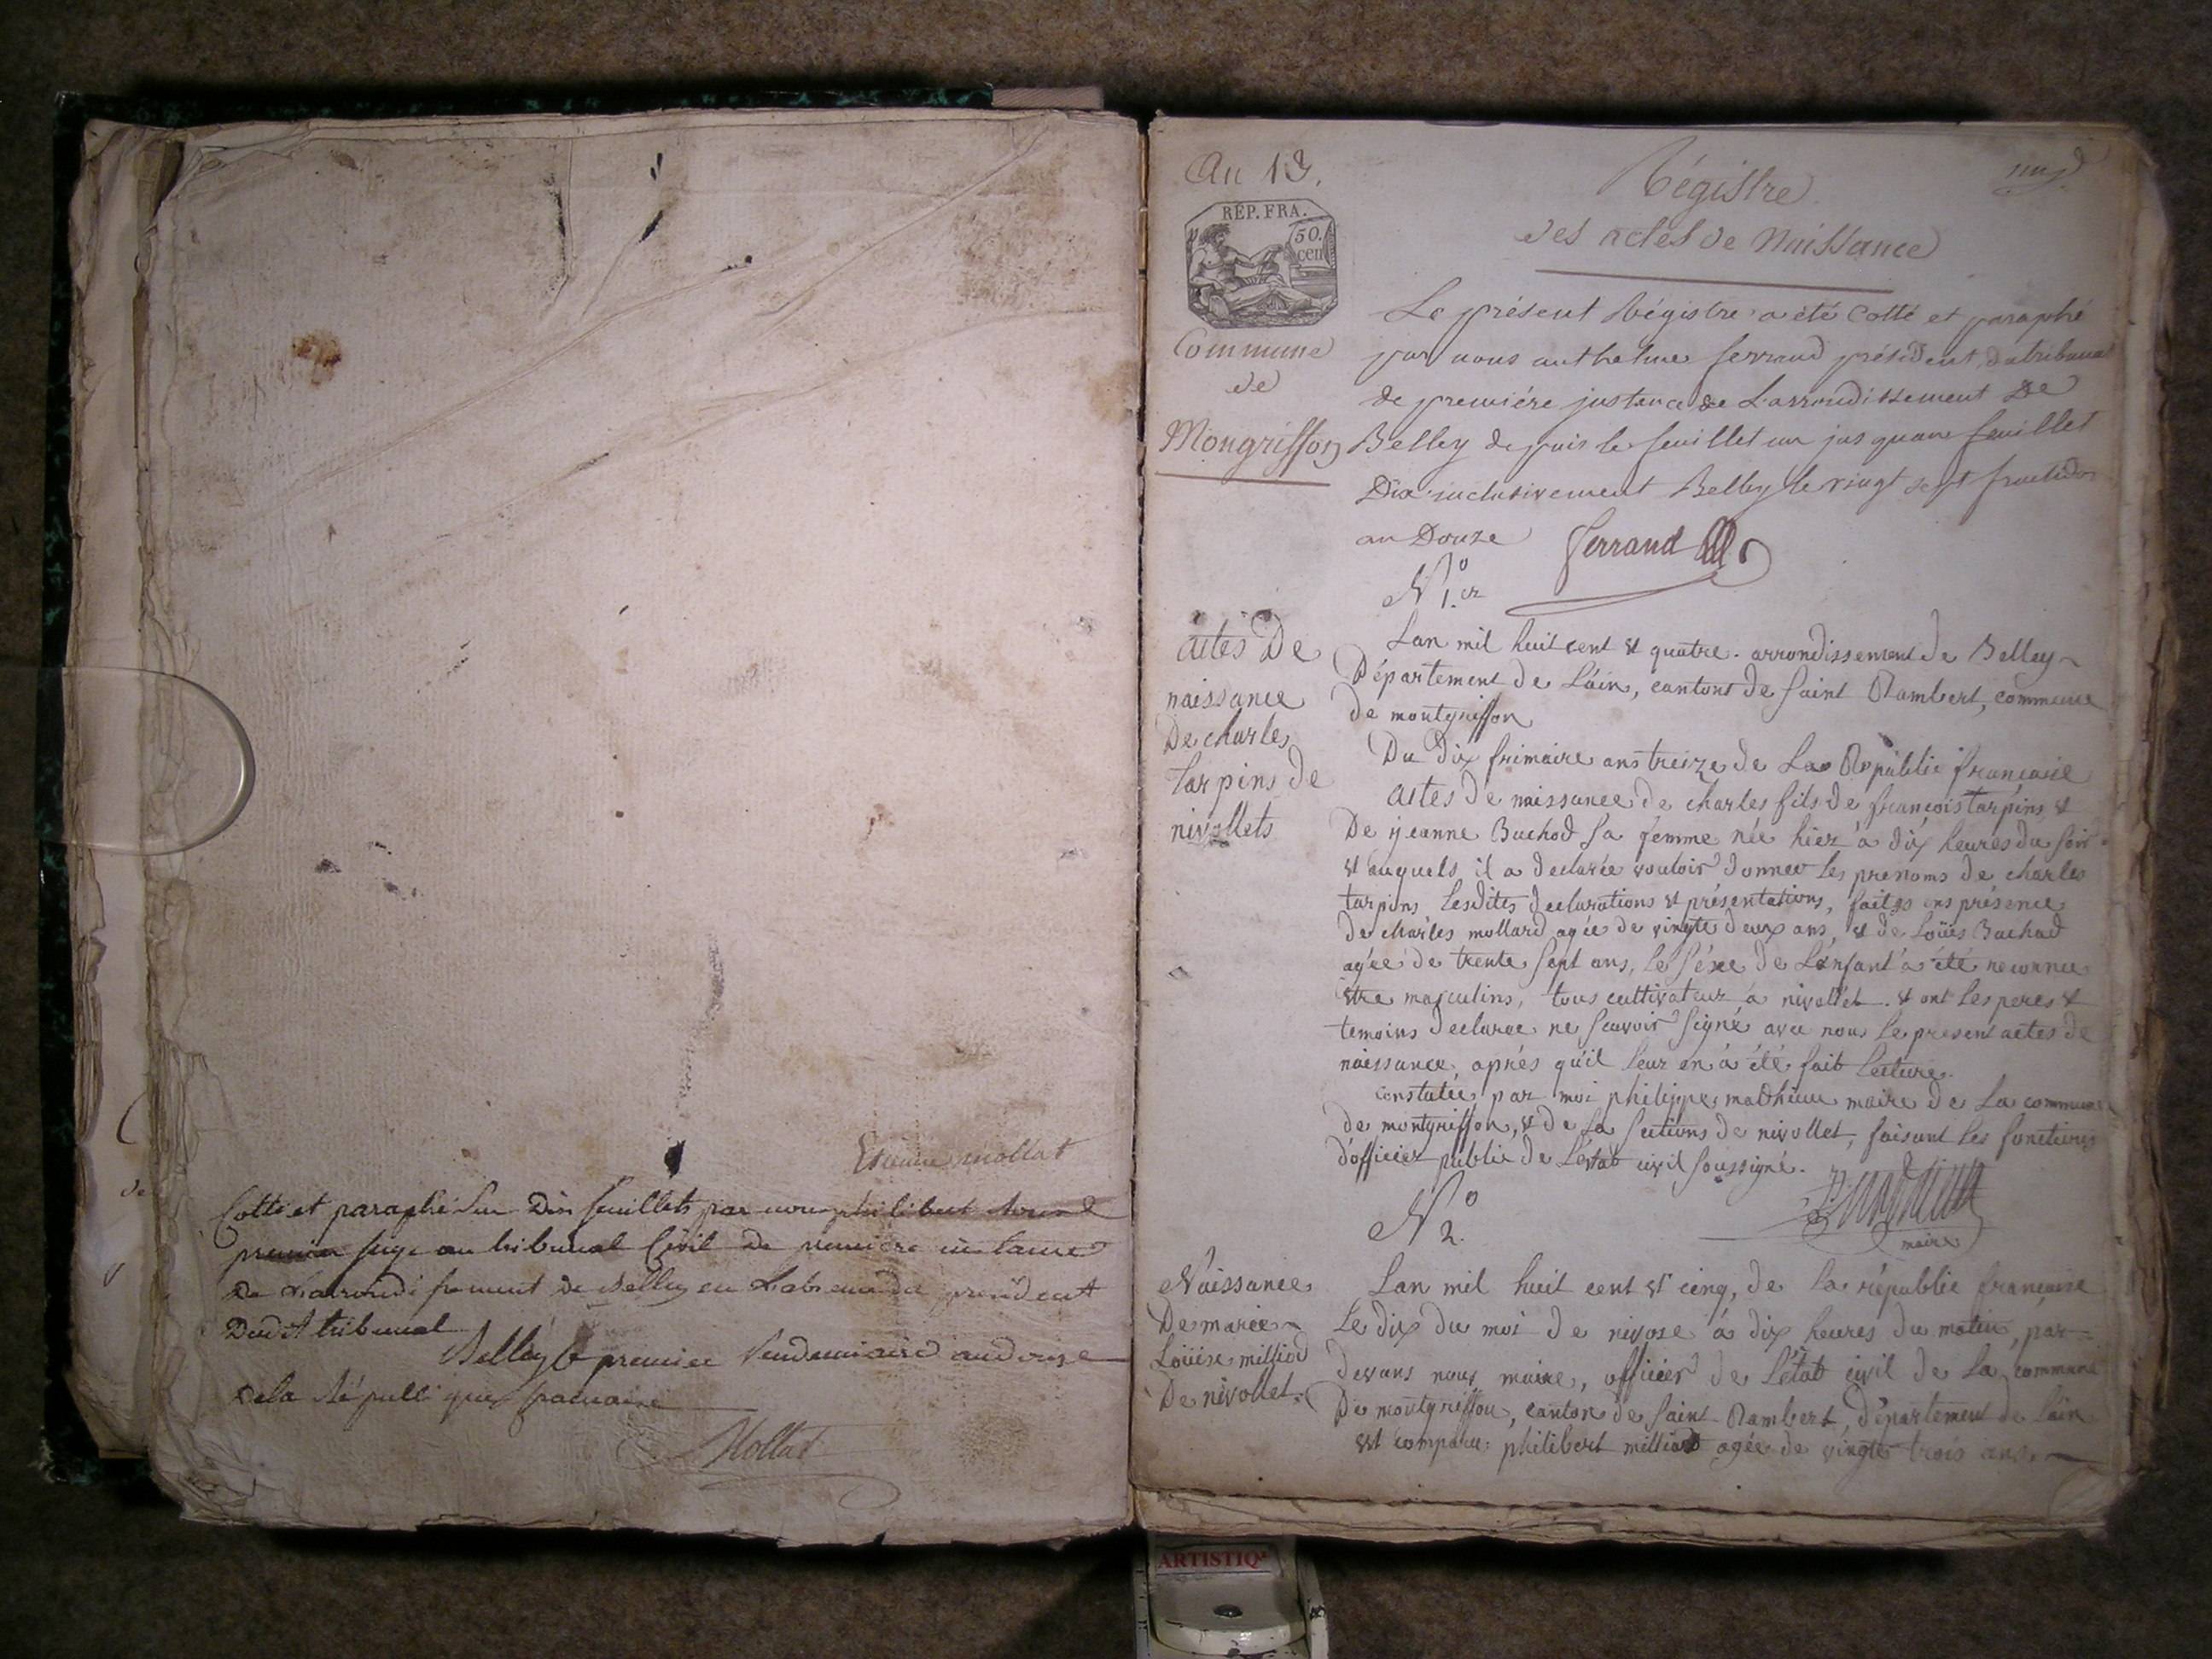 Etienne mollat
Cotté et paraphé Sur Dix feuillets par nous philibert
premier juge au tribunal Civil de premiere instance
De Larrondissement de Belley en Labsence du président
Dudit tribunal
Belley le premier Vendemiaire an douze
De la République francaise
Mollat
An 13.
RÉP. FRA.
50.
cen
Commune
de
Mongriffon
Régistre
des actes de Naissance
Le présent Régistre a été Cotté et paraphé
par nous anthelme ferrand président du tribunal
de première instance de L'arrondissement De
Belley depuis le feuillet un jusquau feuillet
Dix inclusivement Belley le vingt sept fructidor
an Douze
ferrand
N.o 1.er
actes De
naissance
De charles
tarpins de
nivollets
Lan mil huit cent & quatre. arrondissement de Belley
Département de L'ain, cantons de saint Rambert, commune
de montgriffon
Du Dix frimaire ans treize de La République française
actes de naissance de charles fils de françois tarpins &
De ÿeanne Buchod sa femme née hiez à dix heures du soir
& auquels il a declarée vouloir donner les prenoms de charles
tarpins Lesdites declarations & présentations, faites ens présence
de charles mollard agée de vingte deux ans, & de Loüis Buchod
agée de trente sept ans, le séxe de L'enfant à été reconnue
etre masculins, tous cultivateur à nivollet. & ont les peres &
temoins declarae ne scavoir signé avec nous le present actes de
naissance, aprés qu'il leur en à été fait lecture.
constatée par moi philippe mathieu maire de La commune
de montgriffon, & de La sections de nivollet, faisant les fonctions
d'officier public de L'etat civil soussigné.
maire
N.o 2.
Naissance
De marie
Loüise milliod
De nivollet.
Lan mil huit cent & cinq, de la républic française
Le dix du moi de nivose à dix heures du matin, par=
devans nous maire, officier de L'état civil de La commune
De montgriffon, canton de saint Rambert, département de L'ain
est comparu philibert milliod agée de vingte trois ans.
ARTISTIQ